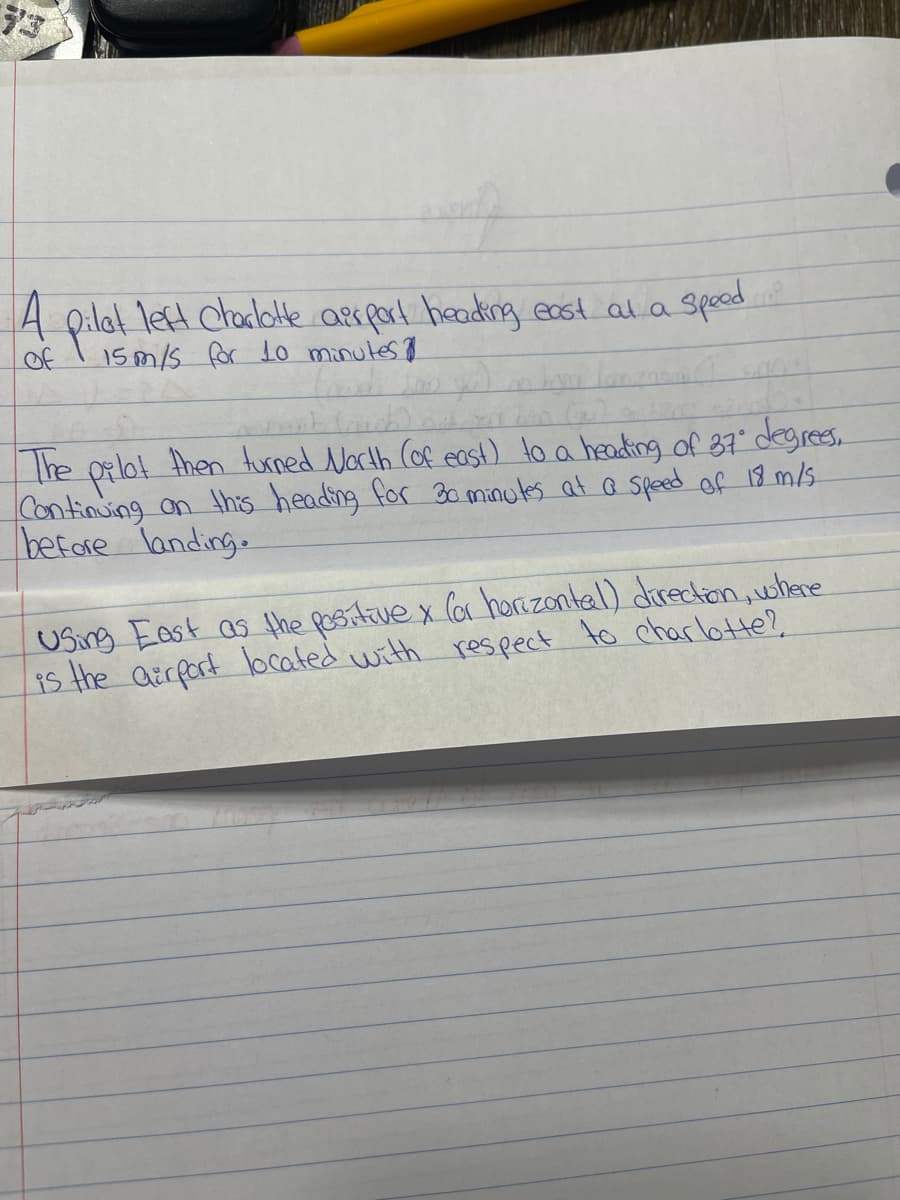 73
A pilot left Charlotte airport heading east at a speed
of 15 m/s for 10 minutes
The pilot then turned North (of east) to a heading of 37° degrees.
Continuing on this heading for 30 minutes at a speed of 18 m/s
before landing.
Using East as the positive x (or horizontal) direction, where
is the airport located with respect to charlotte?